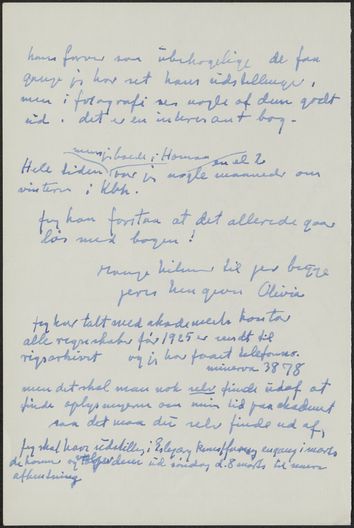 hans farver saa ubehagelige de faa
gange jeg har set hans udstillinger,
men i fotografi ses nogle af dem godt
ud. det er en interesant bog.
mens jeg boede i Hornaa
Hele tiden var jeg nogle maaneder om
vinteren i Kbh.
Jeg kan forstaa at det allerede gaar
løs med bogen!
Mange hilsner til jer begge
jeres hengivne Olivia
Jeg har talt med akademiets kontor
alle regnskaber før 1925 er sendt til
rigsarkivet og jeg har faaet telefonno.
minerva 3878
men det skal man nok selv finde ud af at
finde oplysningerne om min tid paa akademiet
saa det maa du selv finde ud af,
Jeg skal have udstilling i Esbjerg Kunstforening engang i marts
de kommer og dem ud søndag d. 8 marts til
afhentning